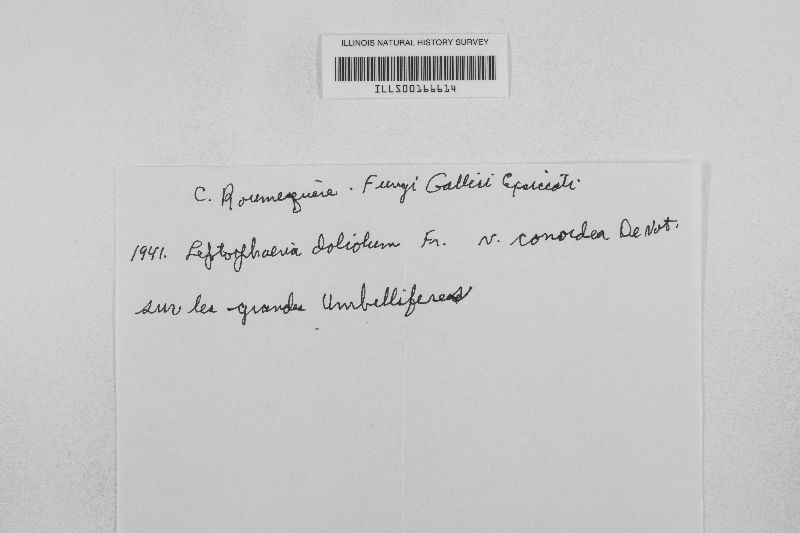 ILLINOIS NATURAL HISTORY SURVEY
ILLS00166614
C. Roumeguère. Fungi Gallici Exsiccati.
1941. Leptosphaeria doliolum Fr. v. conoidea De Not.
sur les grandes Umbelliferes